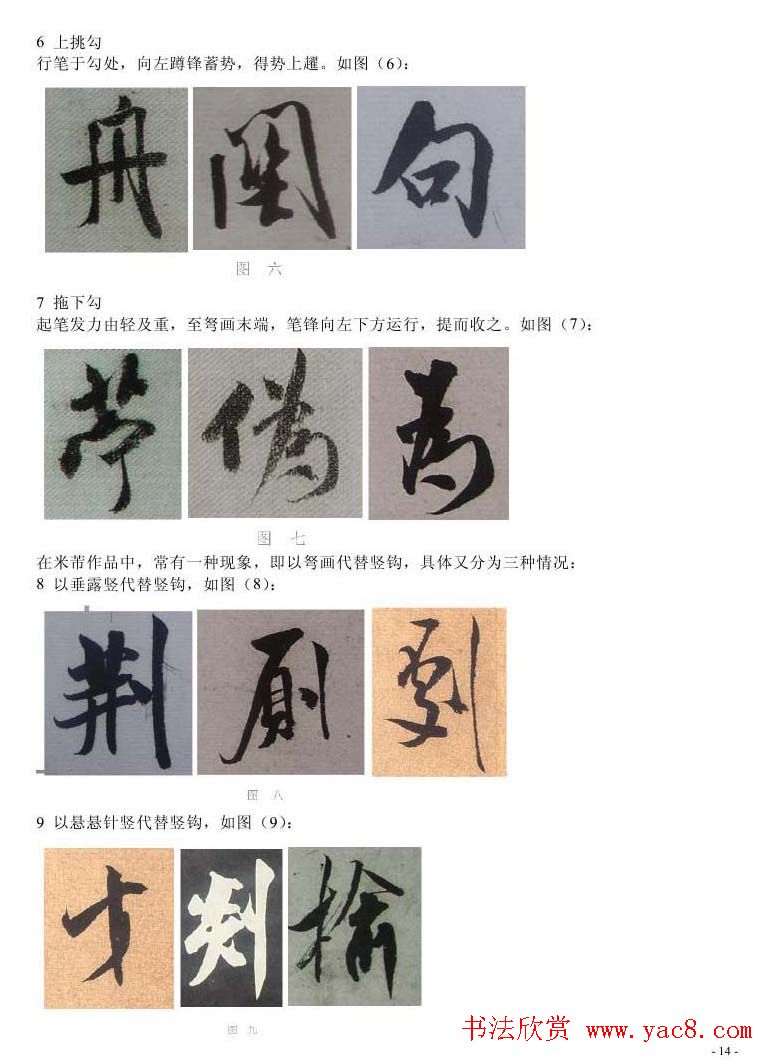 6 上挑勾
行笔于勾处，向左蹲锋蓄势，得势上趯。如图（6）：
舟 閑 句
图 六
7 拖下勾
起笔发力由轻及重，至弩画末端，笔锋向左下方运行，提而收之。如图（7）：
苧 偽 為
图 七
在米芾作品中，常有一种现象，即以弩画代替竖钩，具体又分为三种情况：
8 以垂露竖代替竖钩，如图（8）：
荆 厠
图 八
9 以悬悬针竖代替竖钩，如图（9）：
才 榆
图 九
书法欣赏 www.yac8.com
- 14 -